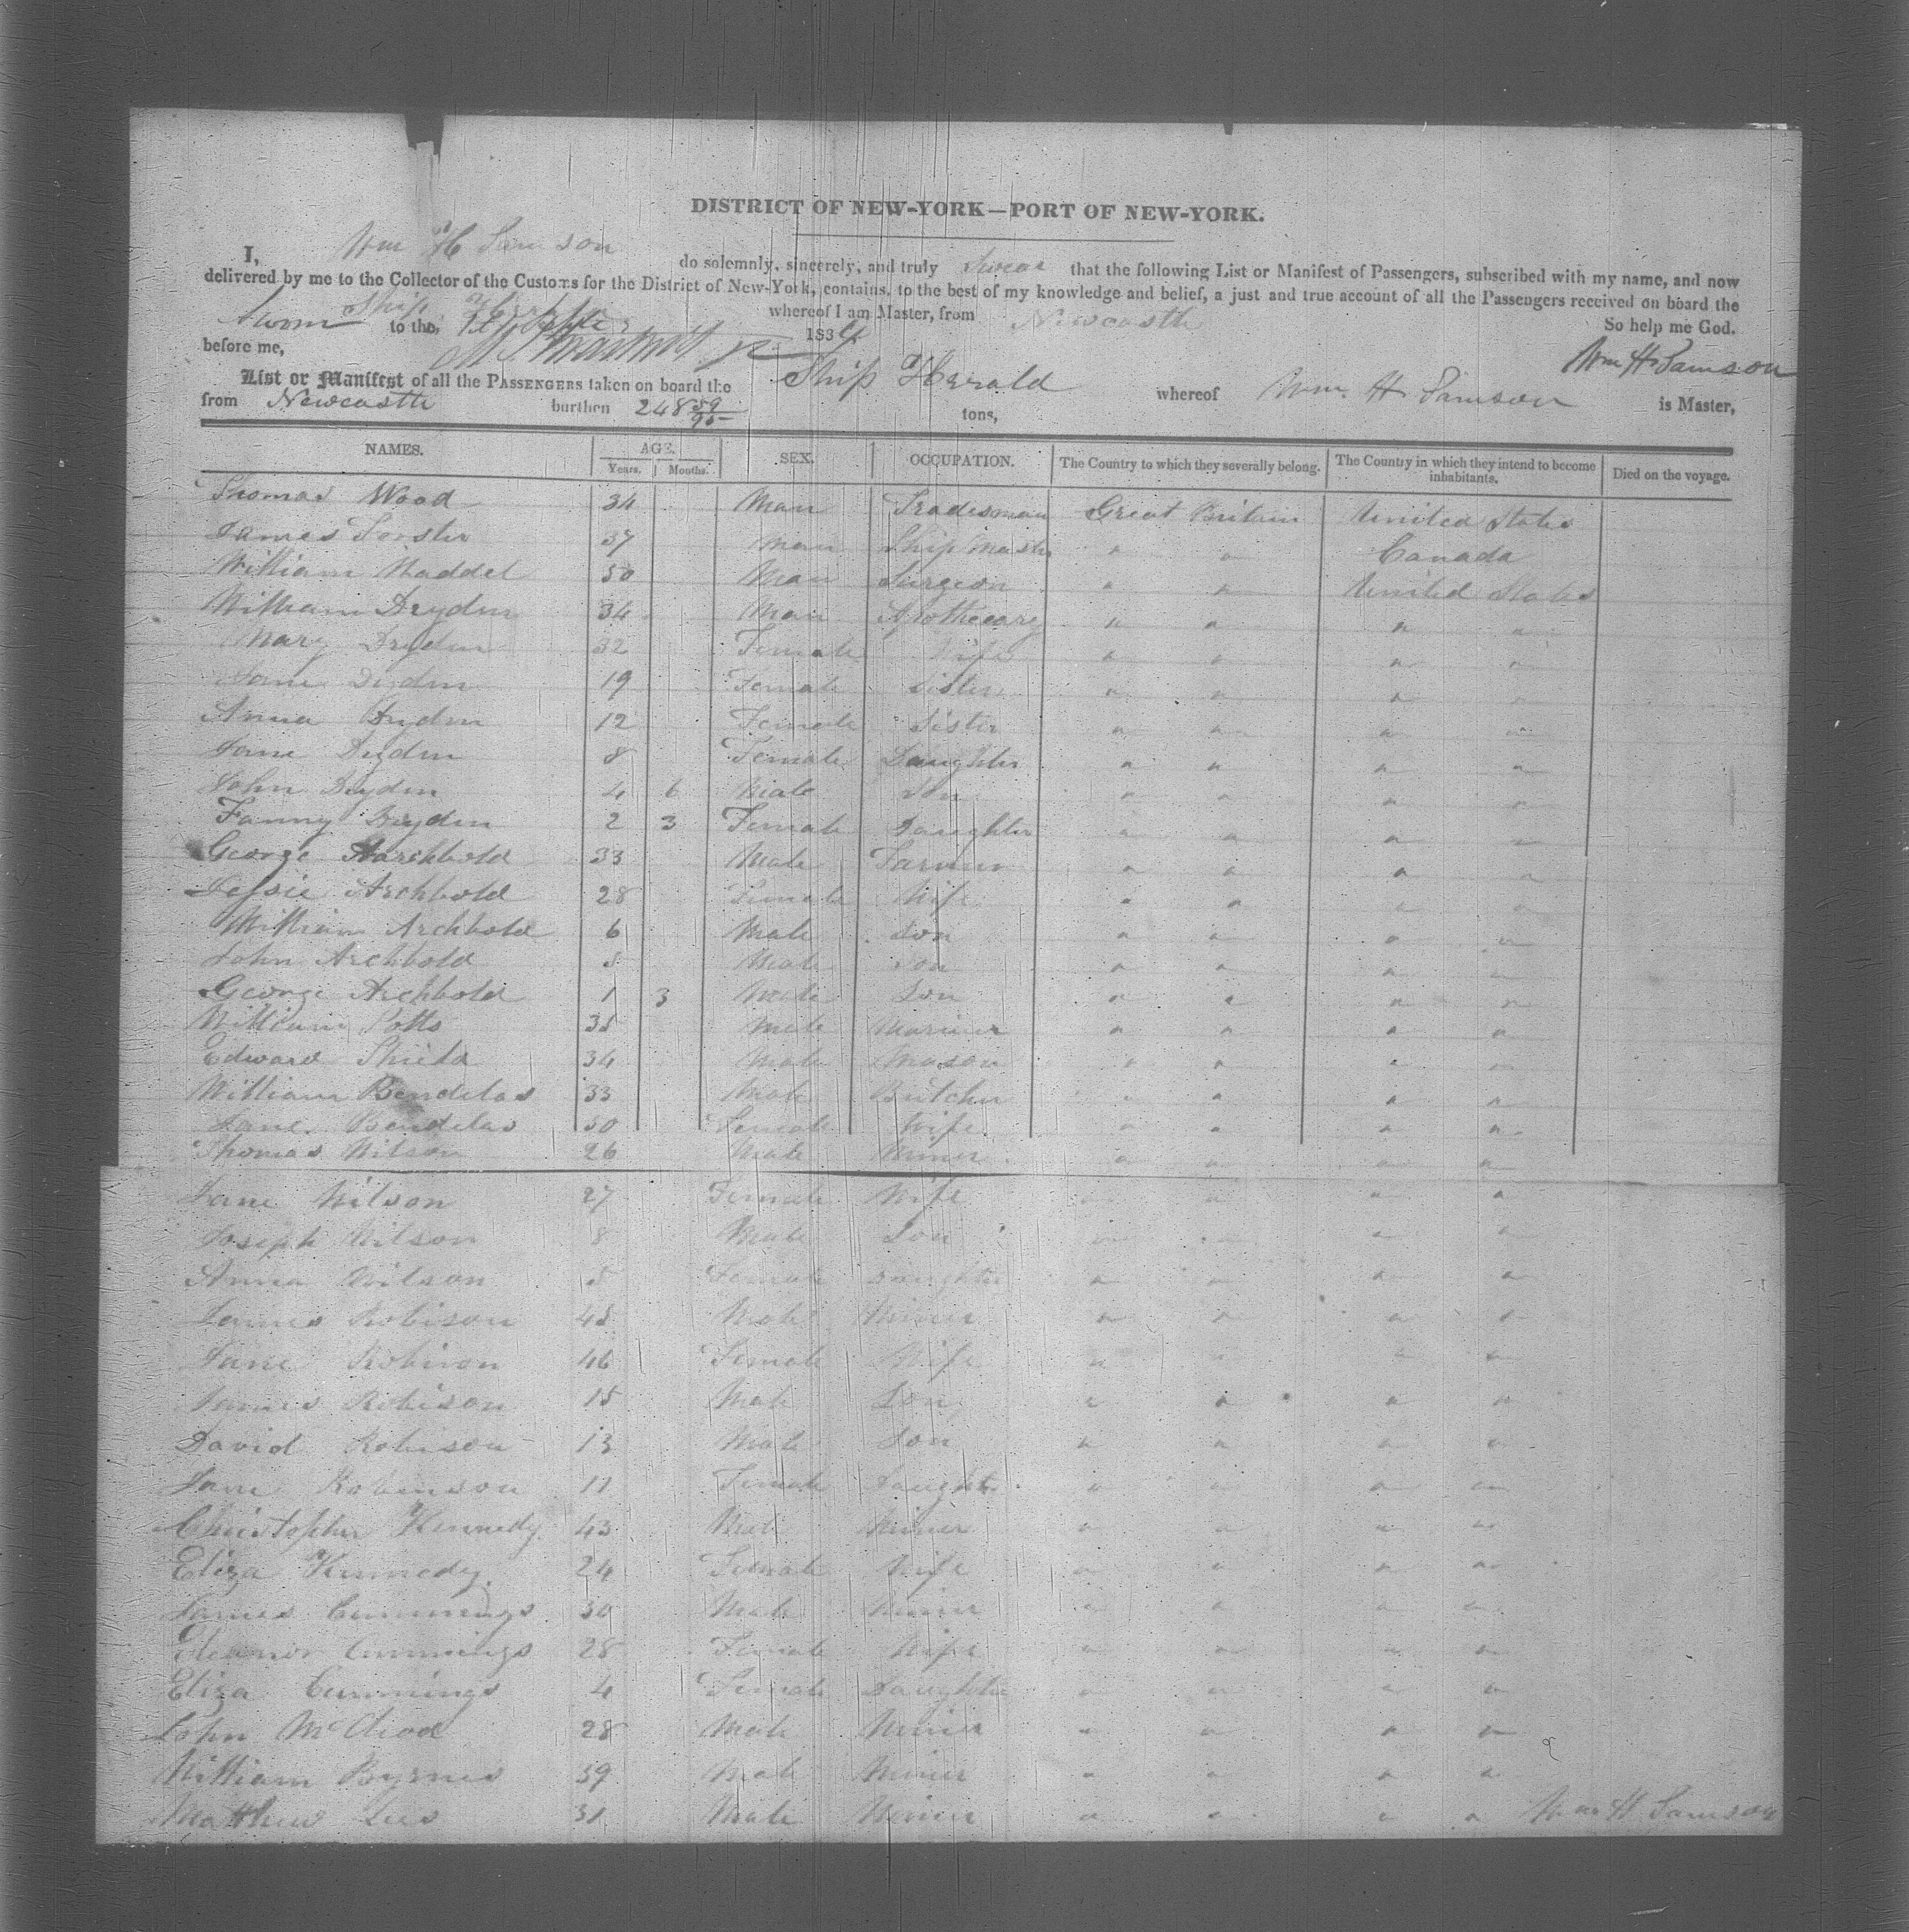 DISTRICT OF NEW-YORK—PORT OF NEW-YORK.
I, Wm H Samson do solemnly, sincerely, and truly Swear that the following List or Manifest of Passengers, subscribed with my name, and now
delivered by me to the Collector of the Customs for the District of New-York, contains, to the best of my knowledge and belief, a just and true account of all the Passengers received on board the
Ship whereof I am Master, from Newcastle So help me God.
Sworn to the, 1834
before me, Wm H Samson
List or Manifest of all the PASSENGERS taken on board the Ship Herald whereof Wm. H Samson is Master,
from Newcastle burthen 248 59/95 tons,
NAMES. AGE. Years. Months. SEX. OCCUPATION. The Country to which they severally belong. The Country in which they intend to become inhabitants. Died on the voyage.
Thomas Wood 34 Man Tradesman Great Britain United States
James Forster 37 Man Ship Master " " Canada
William Waddel 50 Man Surgeon " " United States
William Dryden 34 Man Apothecary " " " "
Mary Dryden 32 Female Wife " " " "
Jane Dryden 19 Female Sister " " " "
Anna Dryden 12 Female Sister " " " "
Jane Dryden 8 Female Daughter " " " "
John Dryden 4 6 Male Son " " " "
Fanny Dryden 2 3 Female Daughter " " " "
George Archbold 33 Male Farmer " " " "
Jessie Archbold 28 Female Wife " " " "
William Archbold 6 Male Son " " " "
John Archbold Male Son " " " "
George Archbold 1 3 Male Son " " " "
William Potts 35 Male Mariner " " " "
Edward Shield 34 Male Mason " " " "
William Bendelas 33 Male Butcher " " " "
Jane Bendelas 30 Female Wife " " " "
Thomas Wilson 26 Male Miner " " " "
Jane Wilson 27 Female Wife " " " "
Joseph Wilson 8 Male Son " " " "
Anna Wilson 5 Female Daughter " " " "
James Robison 45 Male Miner " " " "
Jane Robison 46 Female Wife " " " "
James Robison 15 Male Son " " " "
David Robison 13 Male Son " " " "
Jane Robinson 11 Female Daught " " " "
Christopher Kennedy 43 Male Miner " " " "
Eliza Kennedy 24 Female Wife " " " "
James Cummings 30 Male Miner " " " "
Eleanor Cummings 28 Female Wife " " " "
Eliza Cummings 4 Female Daughter " " " "
John McCleod 28 Male Miner " " " "
William Byrnes 39 Male Miner " " " "
Matthew Lees 31 Male Miner " " " " Wm H Samson